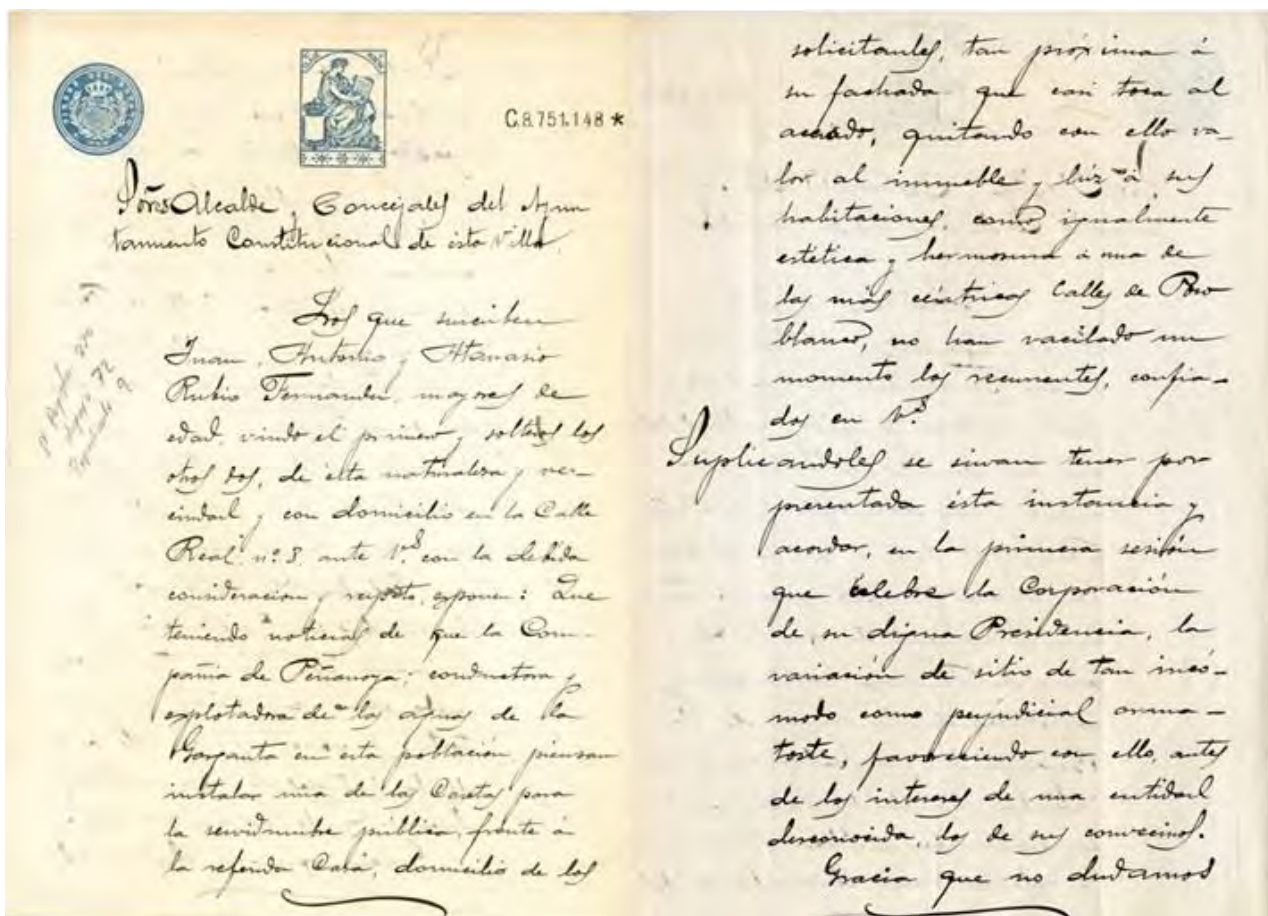 C.8.751.148 *
Sores Alcalde y Concejales del Ayun
tamiento Constitucional de ésta Villa.
Los que suscriben
Juan, Antonio y Atanasio
Rubio Fernandez, mayores de
edad, viudo el primero y solteros los
otros dos, de esta naturaleza y ve-
cindad y con domicilio en la Calle
Real nº. 8. ante V.s con la debida
consideración y respeto, exponen: Que
teniendo noticias de que la Com-
pañia de Peñarroya, conductora y
explotadora de las aguas de la
Garganta en esta población piensan
instalar una de las Casetas para
la servidumbre pública, frente á
la referida Casa, domicilio de los
solicitantes, tan próxima á
su fachada que casi toca al
acerado, quitando con ello va-
lor al inmueble y luz á sus
habitaciones, como igualmente
estética y hermosura á una de
las más céntricas Calles de Pozo
blanco, no han vacilado un
momento los recurrentes, confia-
dos en V.s
Suplicandoles se sirvan tener por
presentada ésta instancia y
acordar, en la primera sesión
que celebre la Corporación
de su digna Presidencia, la
variación de sitio de tan incó-
modo como perjudicial arma-
toste, favoreciendo con ello, antes
de los intereses de una entidad
desconocida, los de sus convecinos.
Gracia que no dudamos